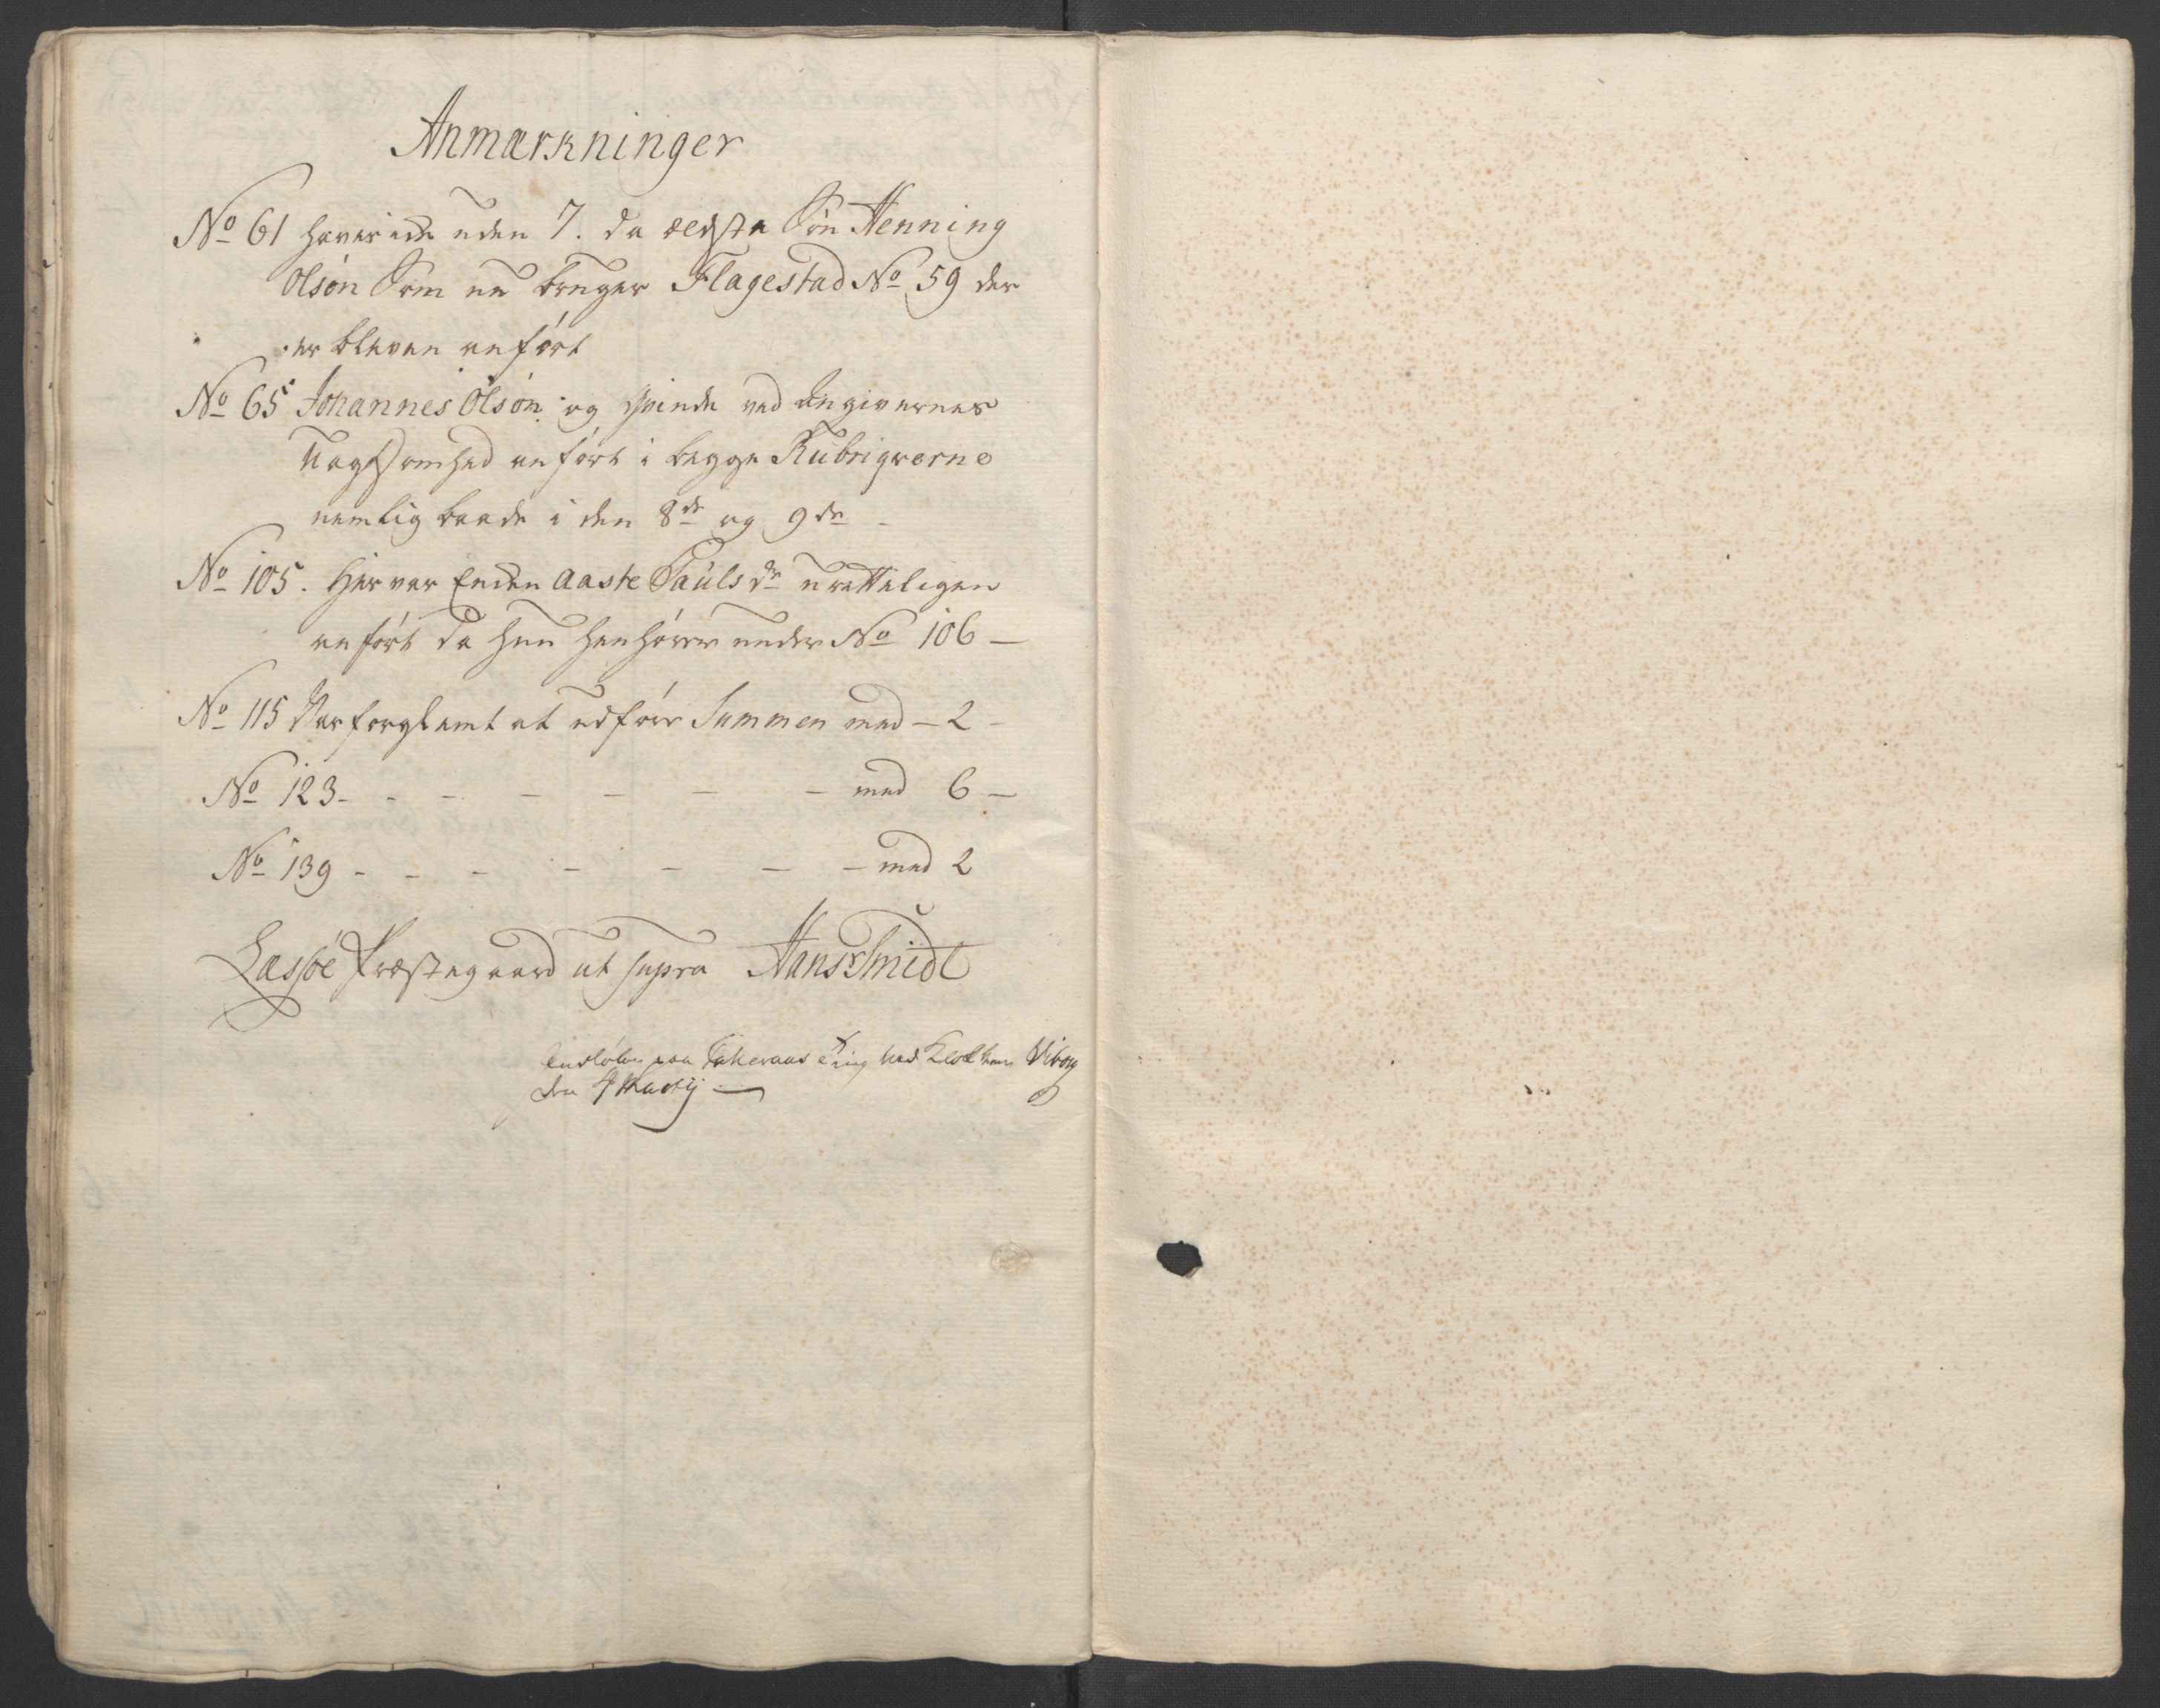 Anmærkninger
No 61 haver icke uden 7. da ældste Søn Henning
Olsøn Som nu bruger Flagestad No 59 der
er bleven anført
No 65 Johannes Olsøn og qvinde ved Angivernes
Uagtsomhed anført i begge Rubriqverne
nemlig baade i den 8de og 9de -
No 105. Her var Enken Aaste Pauls dr urætteligen
anført da hun henhører under No 106 —
No 115 Var forglemt at udføre Summen med — 2 -
No 123 - - - - - - - med 6 —
No 139 - - - - - - - med 2
Læsøe Præstegaard ut supra Hans Smidt
paa ved Viborg
den Martij —